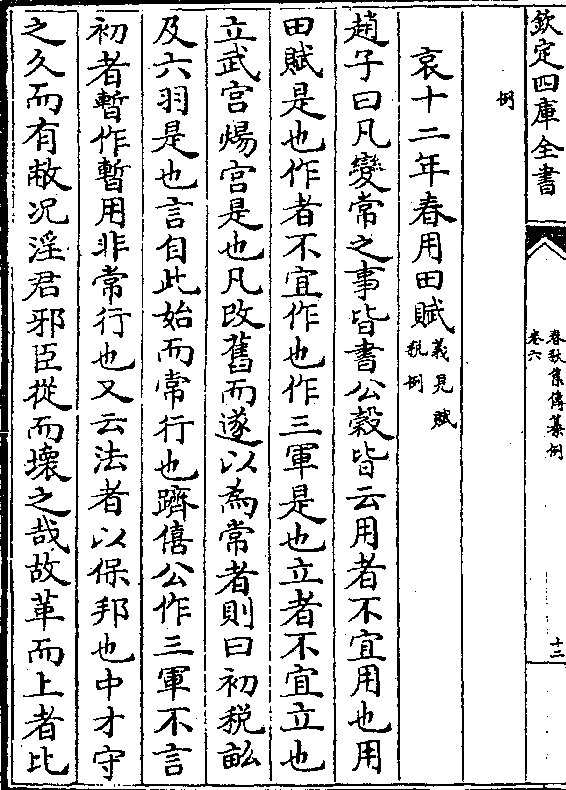 欽定四庫全書
春秋集傳纂例
卷六
十二
例
哀十二年春用田賦義見賦
稅例
趙子曰凡變常之事皆書公穀皆云用者不宜用也用
田賦是也作者不宜作也作三軍是也立者不宜立也
立武宫煬宫是也凡改舊而遂以為常者則曰初税畝
及六羽是也言自此始而常行也躋僖公作三軍不言
初者暫作暫用非常行也又云法者以保邦也中才守
之久而有敝况淫君邪臣從而壞之哉故革而上者比